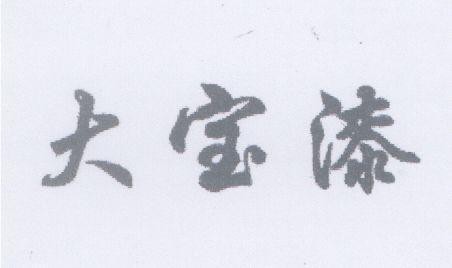 大宝漆